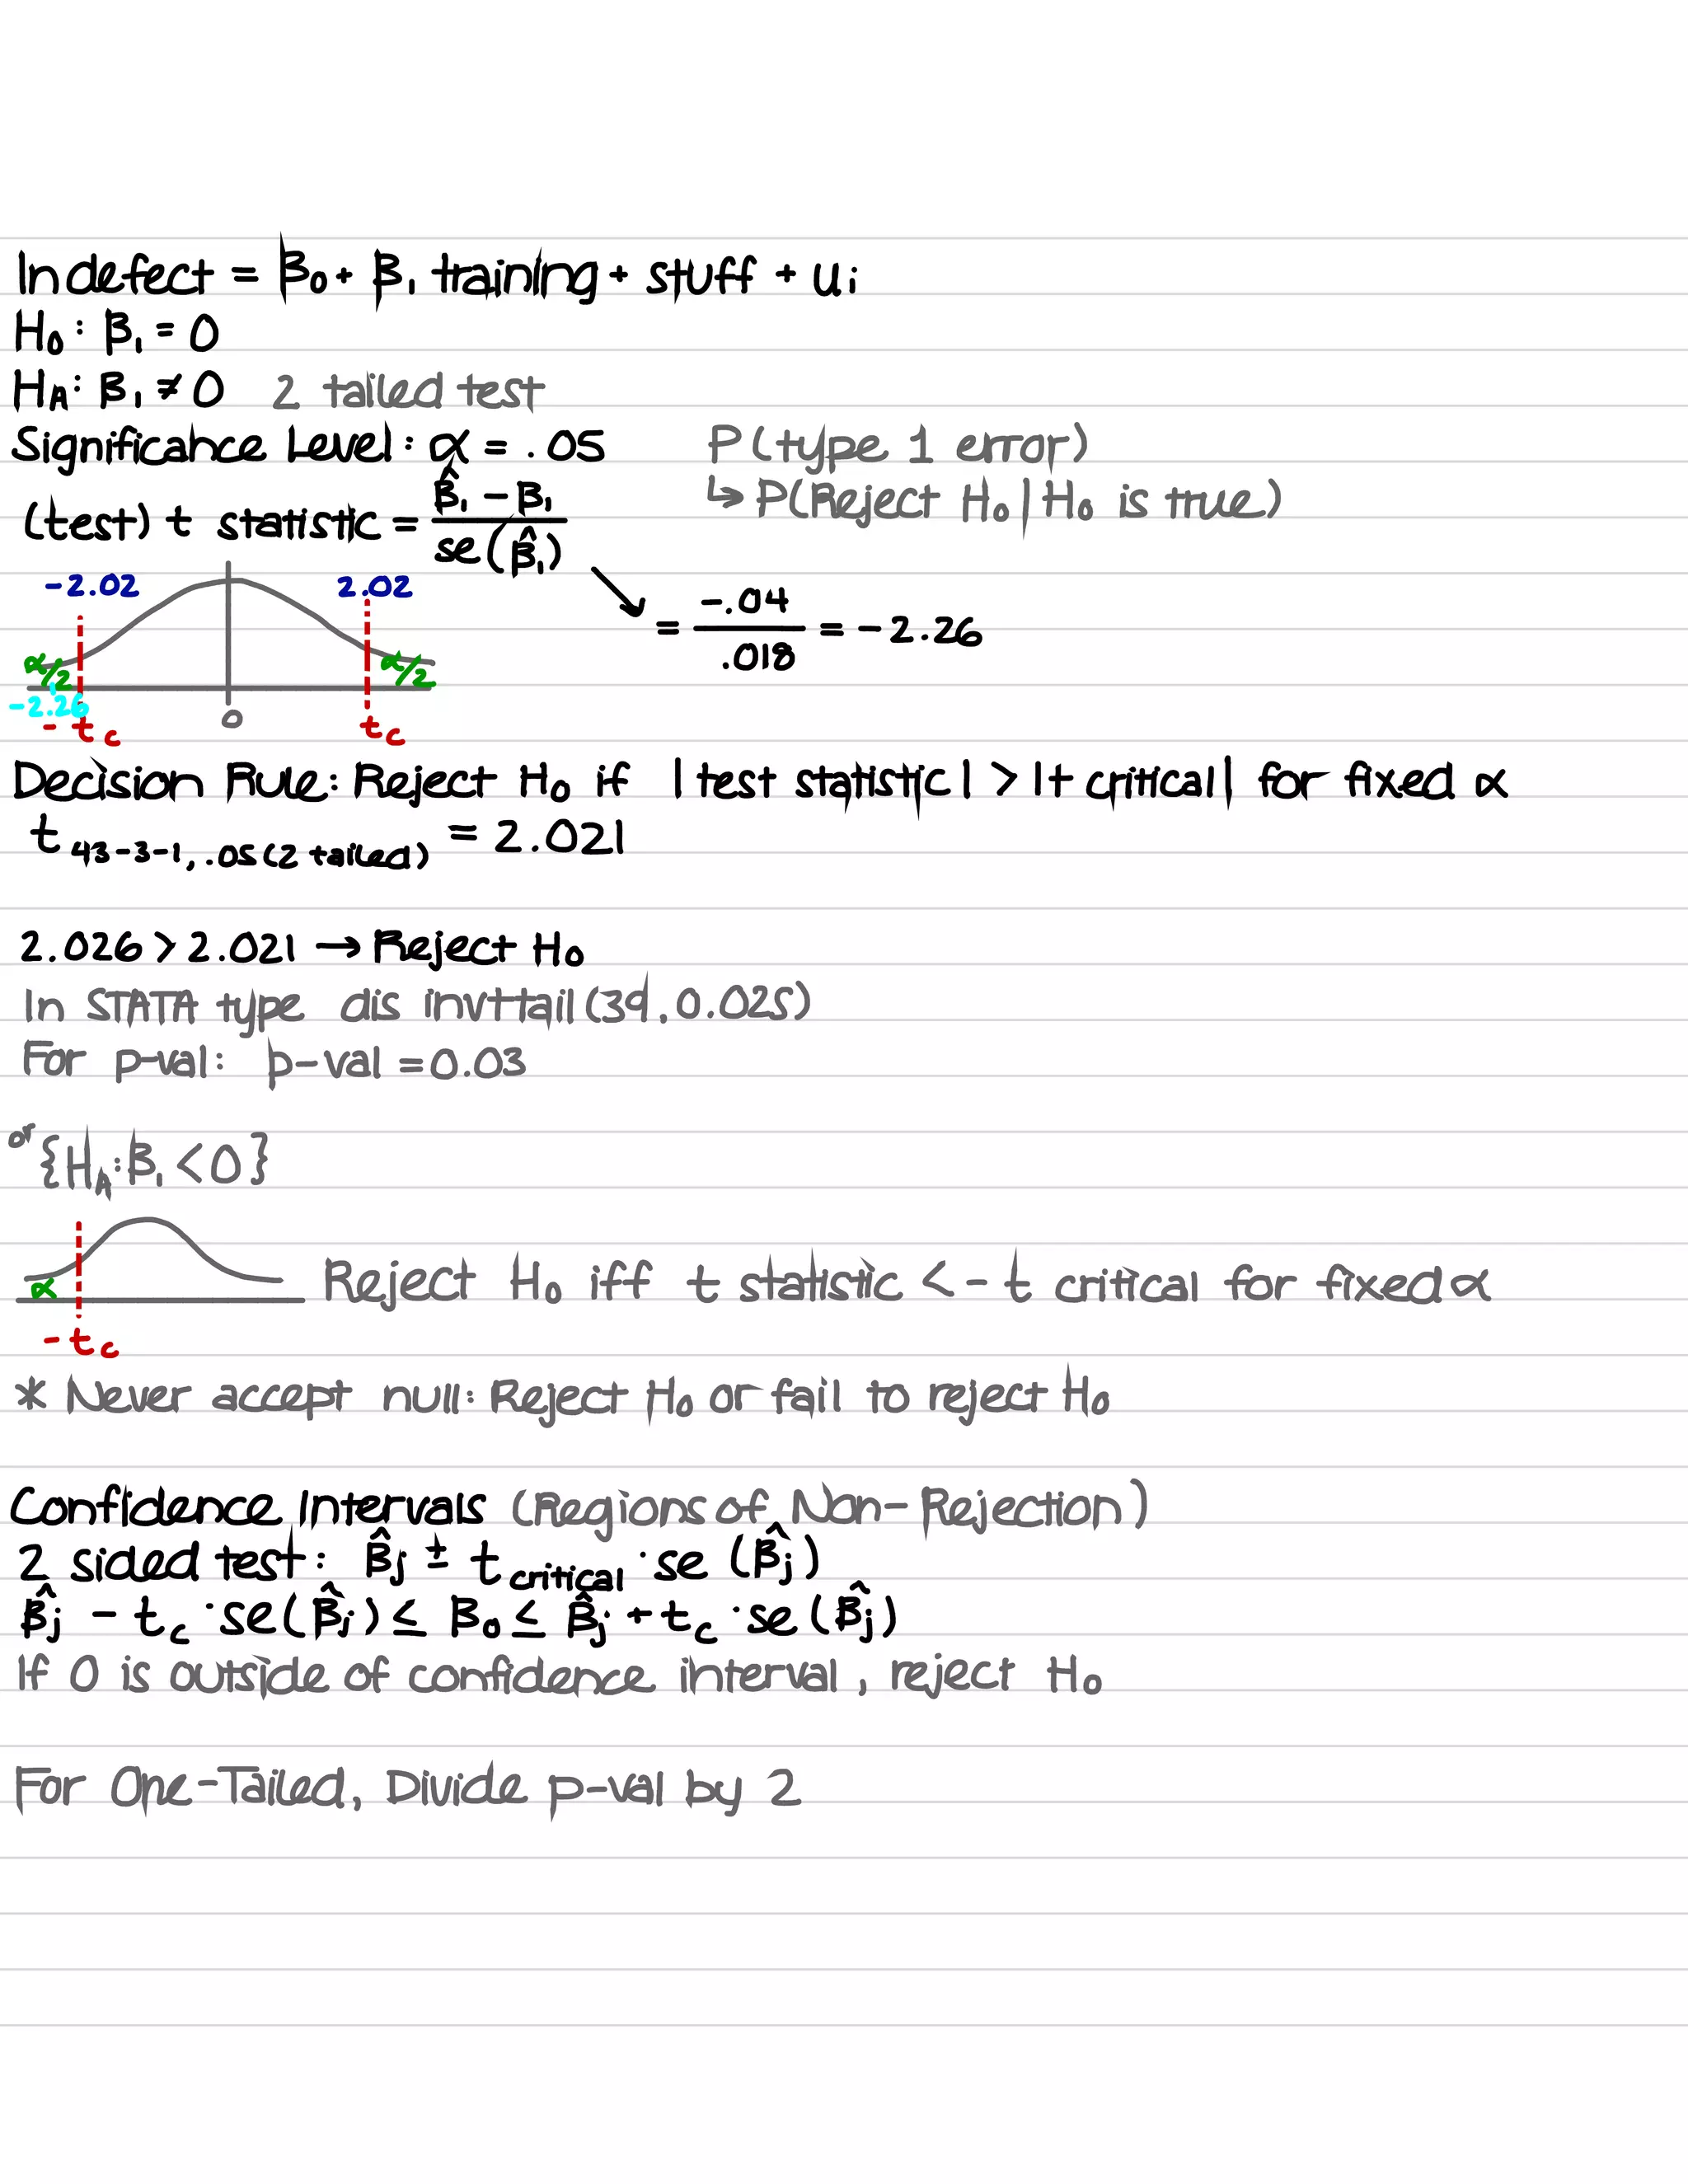 ln defect = β₀ + β₁ training + stuff + uᵢ
H₀: β₁ = 0
H_A: β₁ ≠ 0 2 tailed test
Significance Level: α = .05 P(type 1 error)
↳ P(Reject H₀ | H₀ is true)
(test) t statistic = (β̂₁ - β₁) / se(β̂₁)
= -.04 / .018 = -2.26
-2.02 2.02
α/2 α/2
-2.26
-t_c 0 t_c
Decision Rule: Reject H₀ if |test statistic| > |t critical| for fixed α
t 43-3-1, .05 (2 tailed) = 2.021
2.026 > 2.021 → Reject H₀
In STATA type dis invttail(39, 0.025)
For p-val: p-val = 0.03
or {H_A: β₁ < 0}
α
-t_c
Reject H₀ iff t statistic < -t critical for fixed α
* Never accept null: Reject H₀ or fail to reject H₀
Confidence Intervals (Regions of Non-Rejection)
2 sided test: β̂ⱼ ± t critical · se (β̂ⱼ)
β̂ⱼ - t_c · se(β̂ⱼ) ≤ β₀ ≤ β̂ⱼ + t_c · se (β̂ⱼ)
If 0 is outside of confidence interval, reject H₀
For One-Tailed, Divide p-val by 2